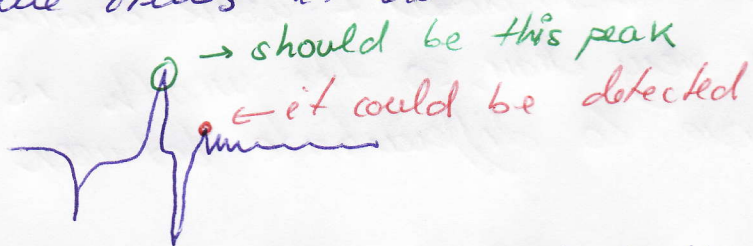 → should be this peak
← it could be detected